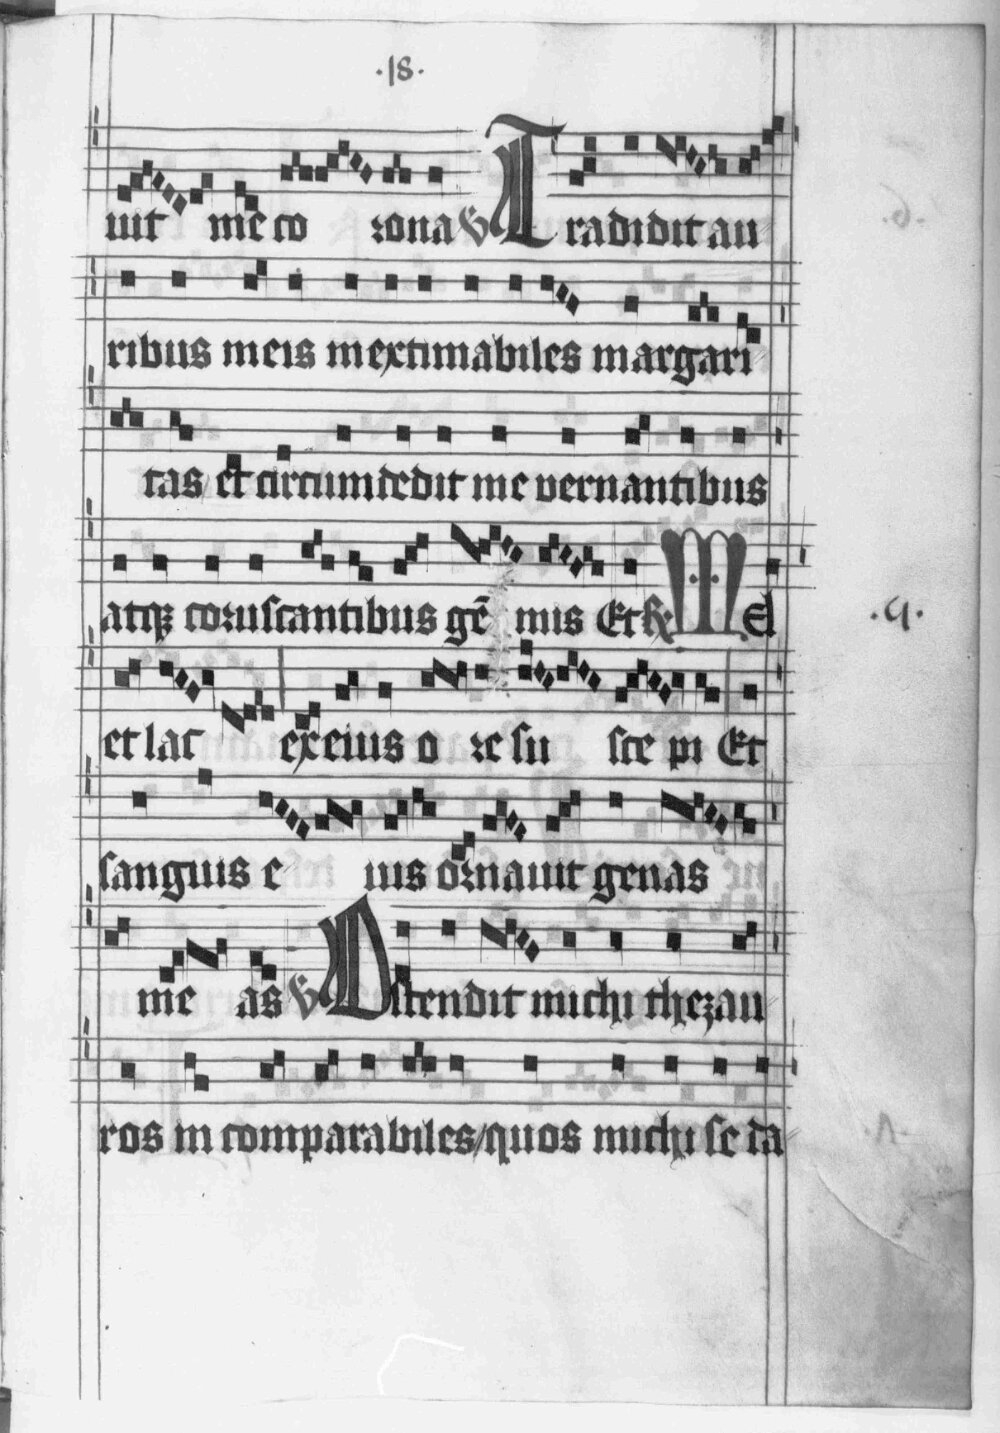 .18.
uit me co rona ℣ Tradidit au
ribus meis inextimabiles margari
tas et circumdedit me vernantibus
atqꝫ coruscantibus gē mis Et ℟ Mel
.9.
et lac ex eius o re su sce pi Et
sanguis e ius ornauit genas
me as ℣ Ostendit michi thezau
ros in comparabiles/quos michi se da